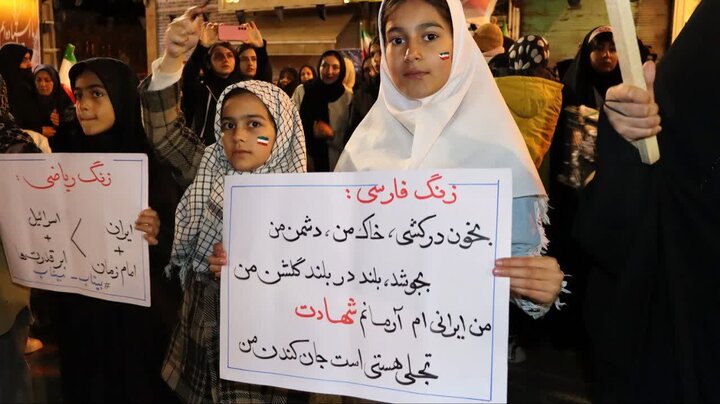 زنگ ریاضی :
ایران اسرائیل
+ < +
امام زمان ابرقدرت
#بیتاب_بیتاب
زنگ فارسی :
بخون درکشی، خاک من، دشمن من
بجوشد، بلند در بلند گلشن من
من ایرانی ام آرمانم شهادت
تجلی هستی است جان کندن من